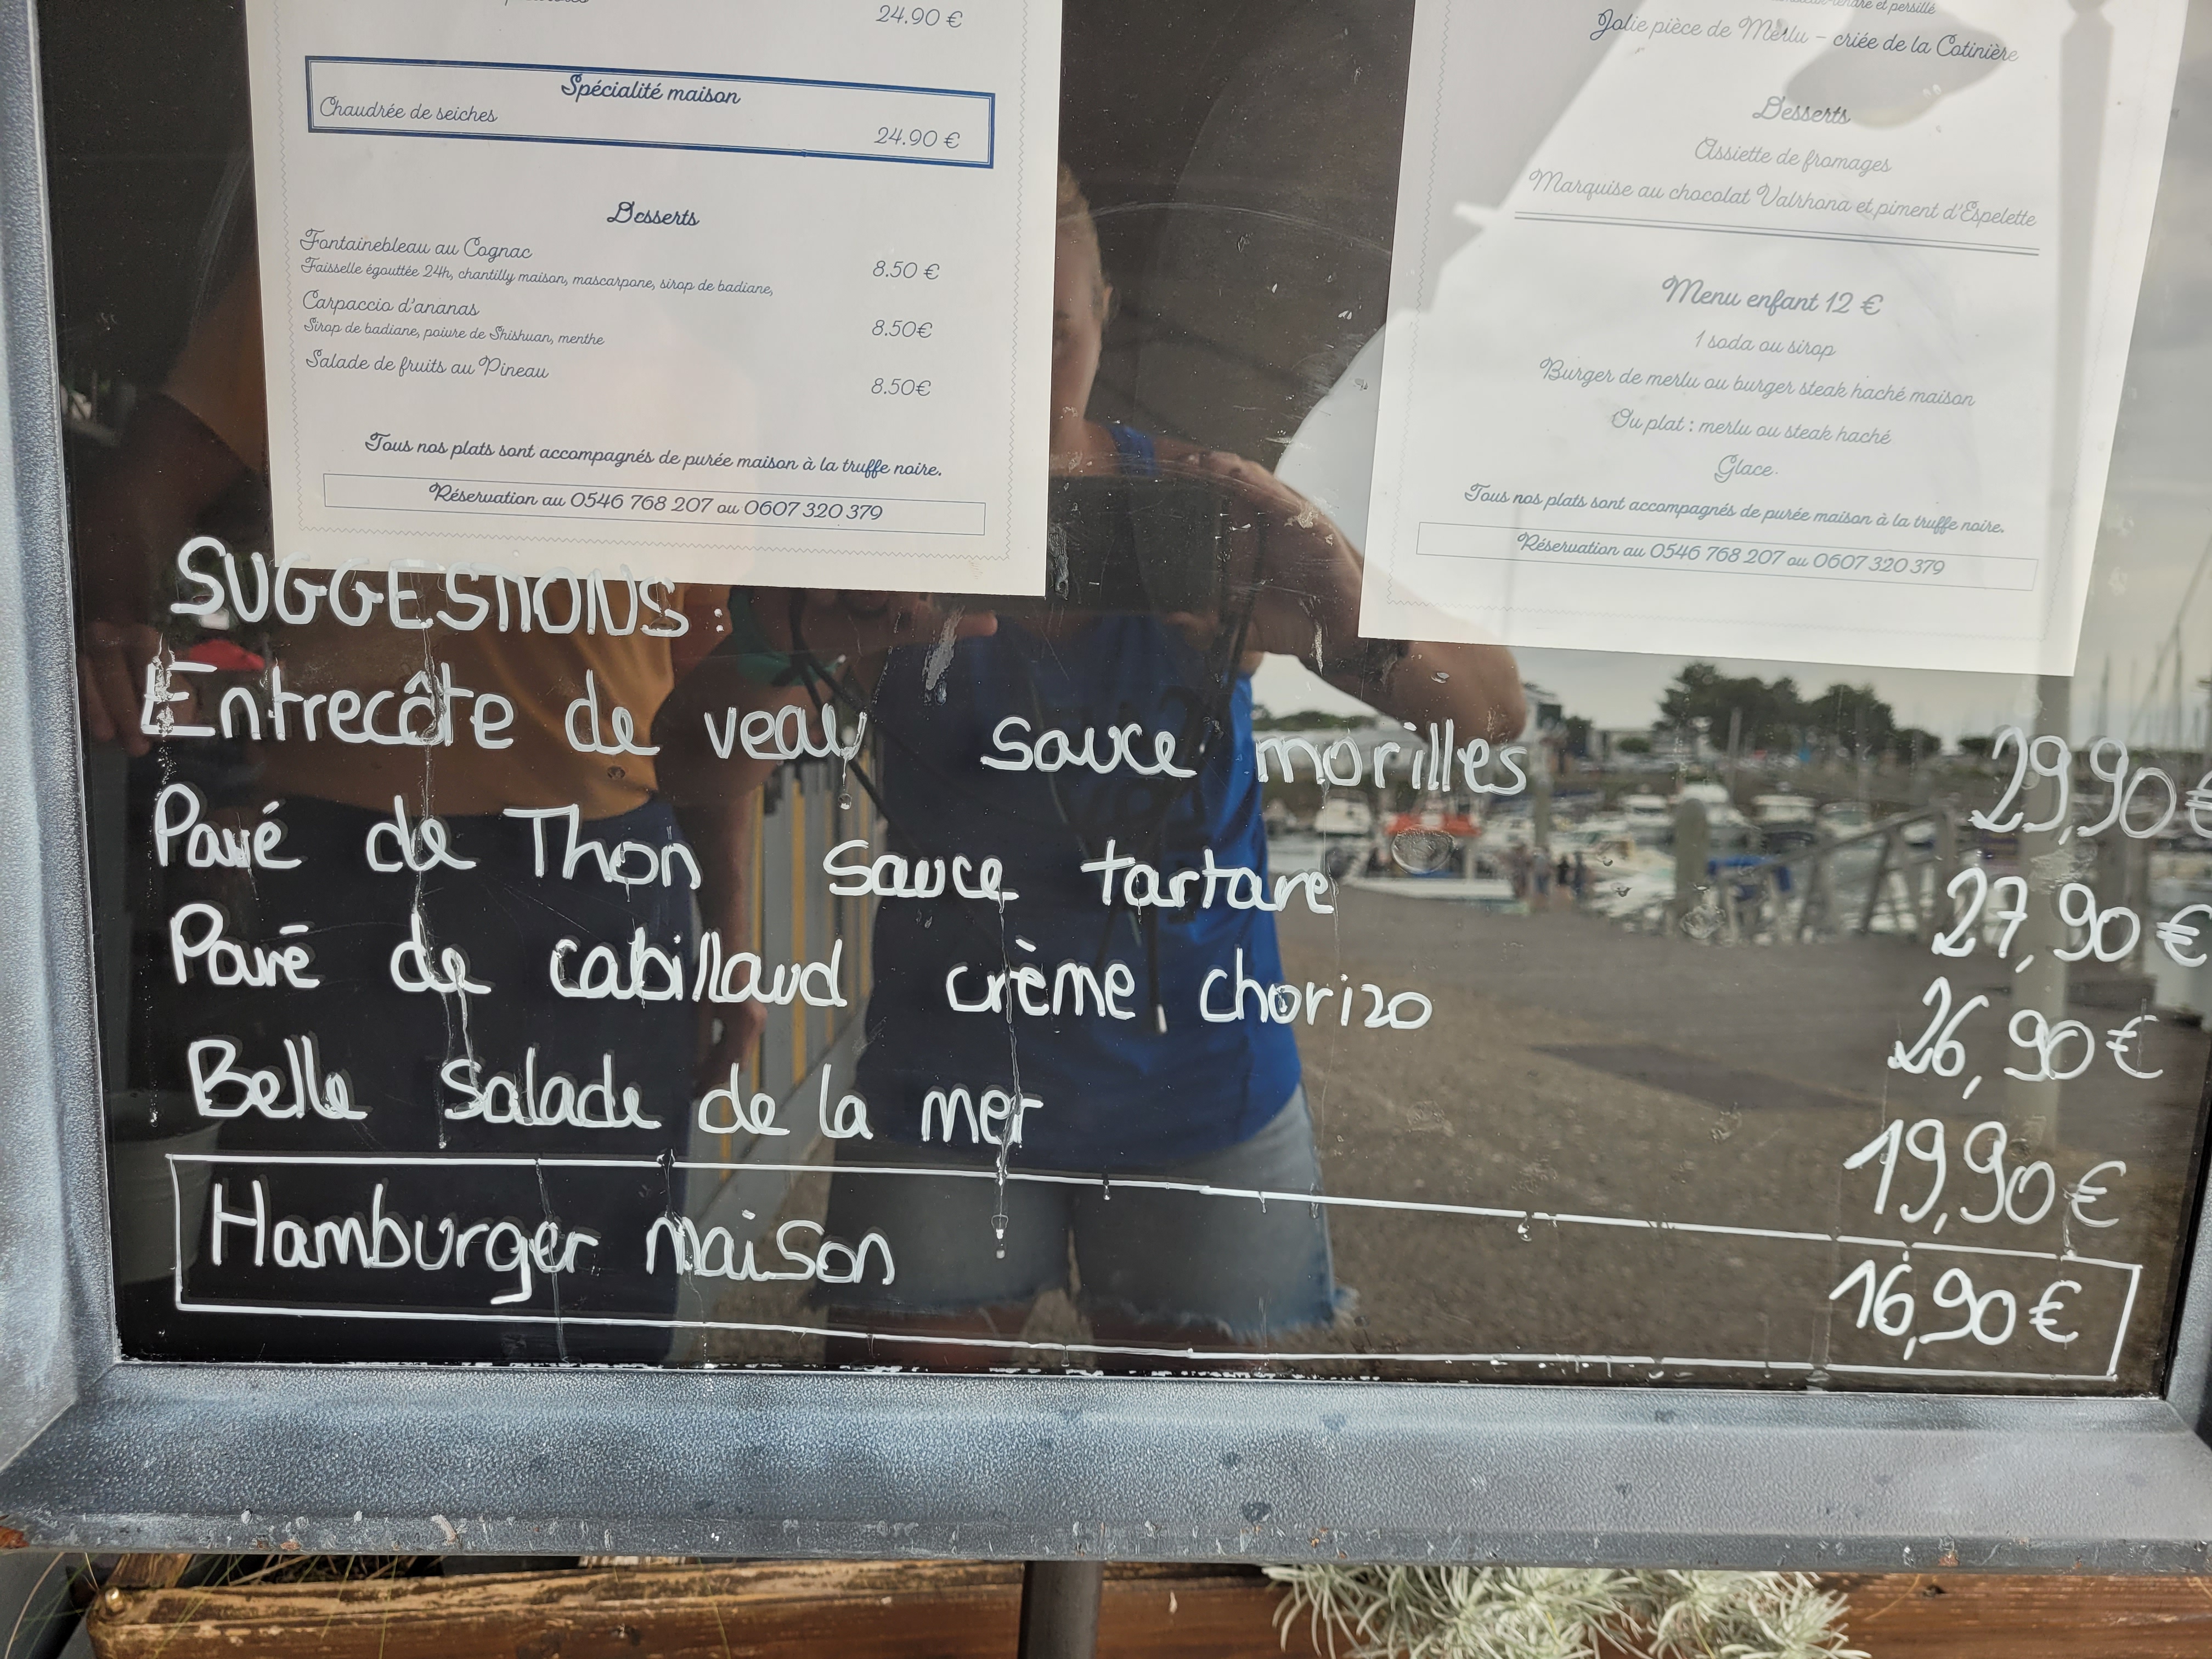 24.90 €
Spécialité maison
Chaudrée de seiches
24.90 €
Desserts
Fontainebleau au Cognac
8.50 €
Faisselle égouttée 24h, chantilly maison, mascarpone, sirop de badiane,
Carpaccio d'ananas
8.50€
Sirop de badiane, poivre de Shishuan, menthe
Salade de fruits au Pineau
8.50€
Tous nos plats sont accompagnés de purée maison à la truffe noire.
Réservation au 0546 768 207 ou 0607 320 379
et persillé
Jolie pièce de Merlu – criée de la Cotinière
Desserts
Assiette de fromages
Marquise au chocolat Valrhona et piment d'Espelette
Menu enfant 12 €
1 soda ou sirop
Burger de merlu ou burger steak haché maison
Ou plat : merlu ou steak haché
Glace.
Tous nos plats sont accompagnés de purée maison à la truffe noire.
Réservation au 0546 768 207 ou 0607 320 379
SUGGESTIONS:
Entrecôte de veau sauce morilles 29,90€
Pavé de Thon sauce tartare 27,90€
Pavé de cabillaud crème chorizo 26,90€
Belle salade de la mer 19,90€
Hamburger maison 16,90€